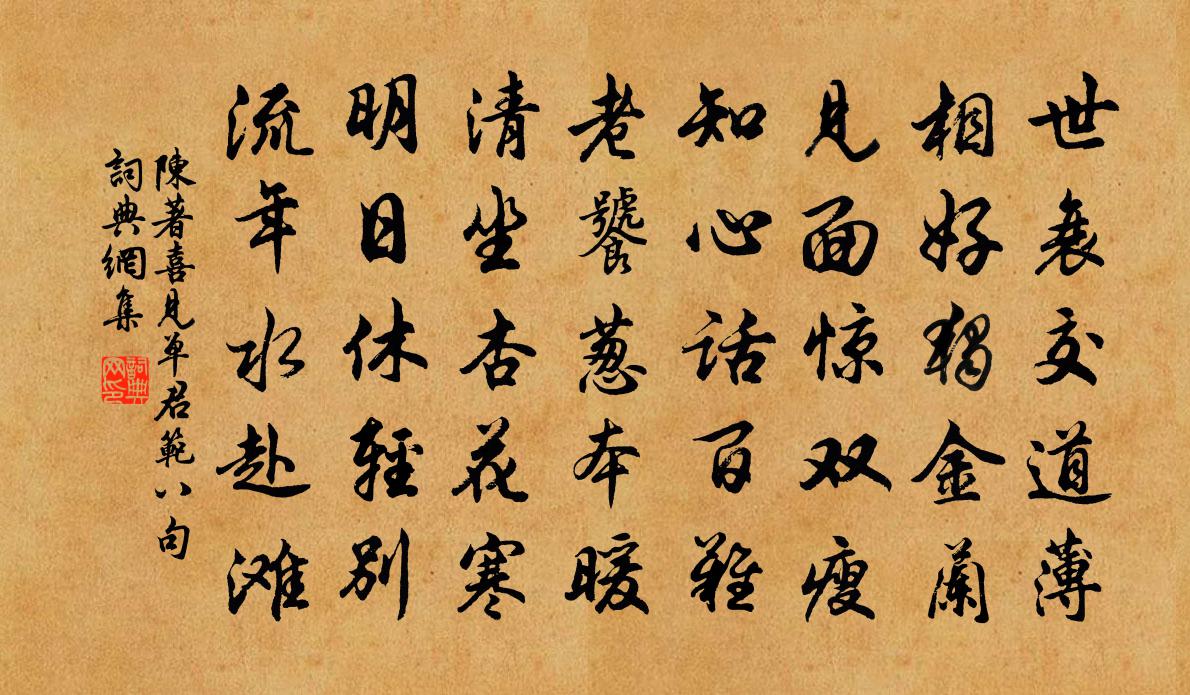 世衰交道薄
相好獨金蘭
見面惊双瘦
知心話百難
老饕葱本暖
清坐杏花寒
明日休輕别
流年水赴滩
陳著喜見单君範八句
詞典網集
詞典网印